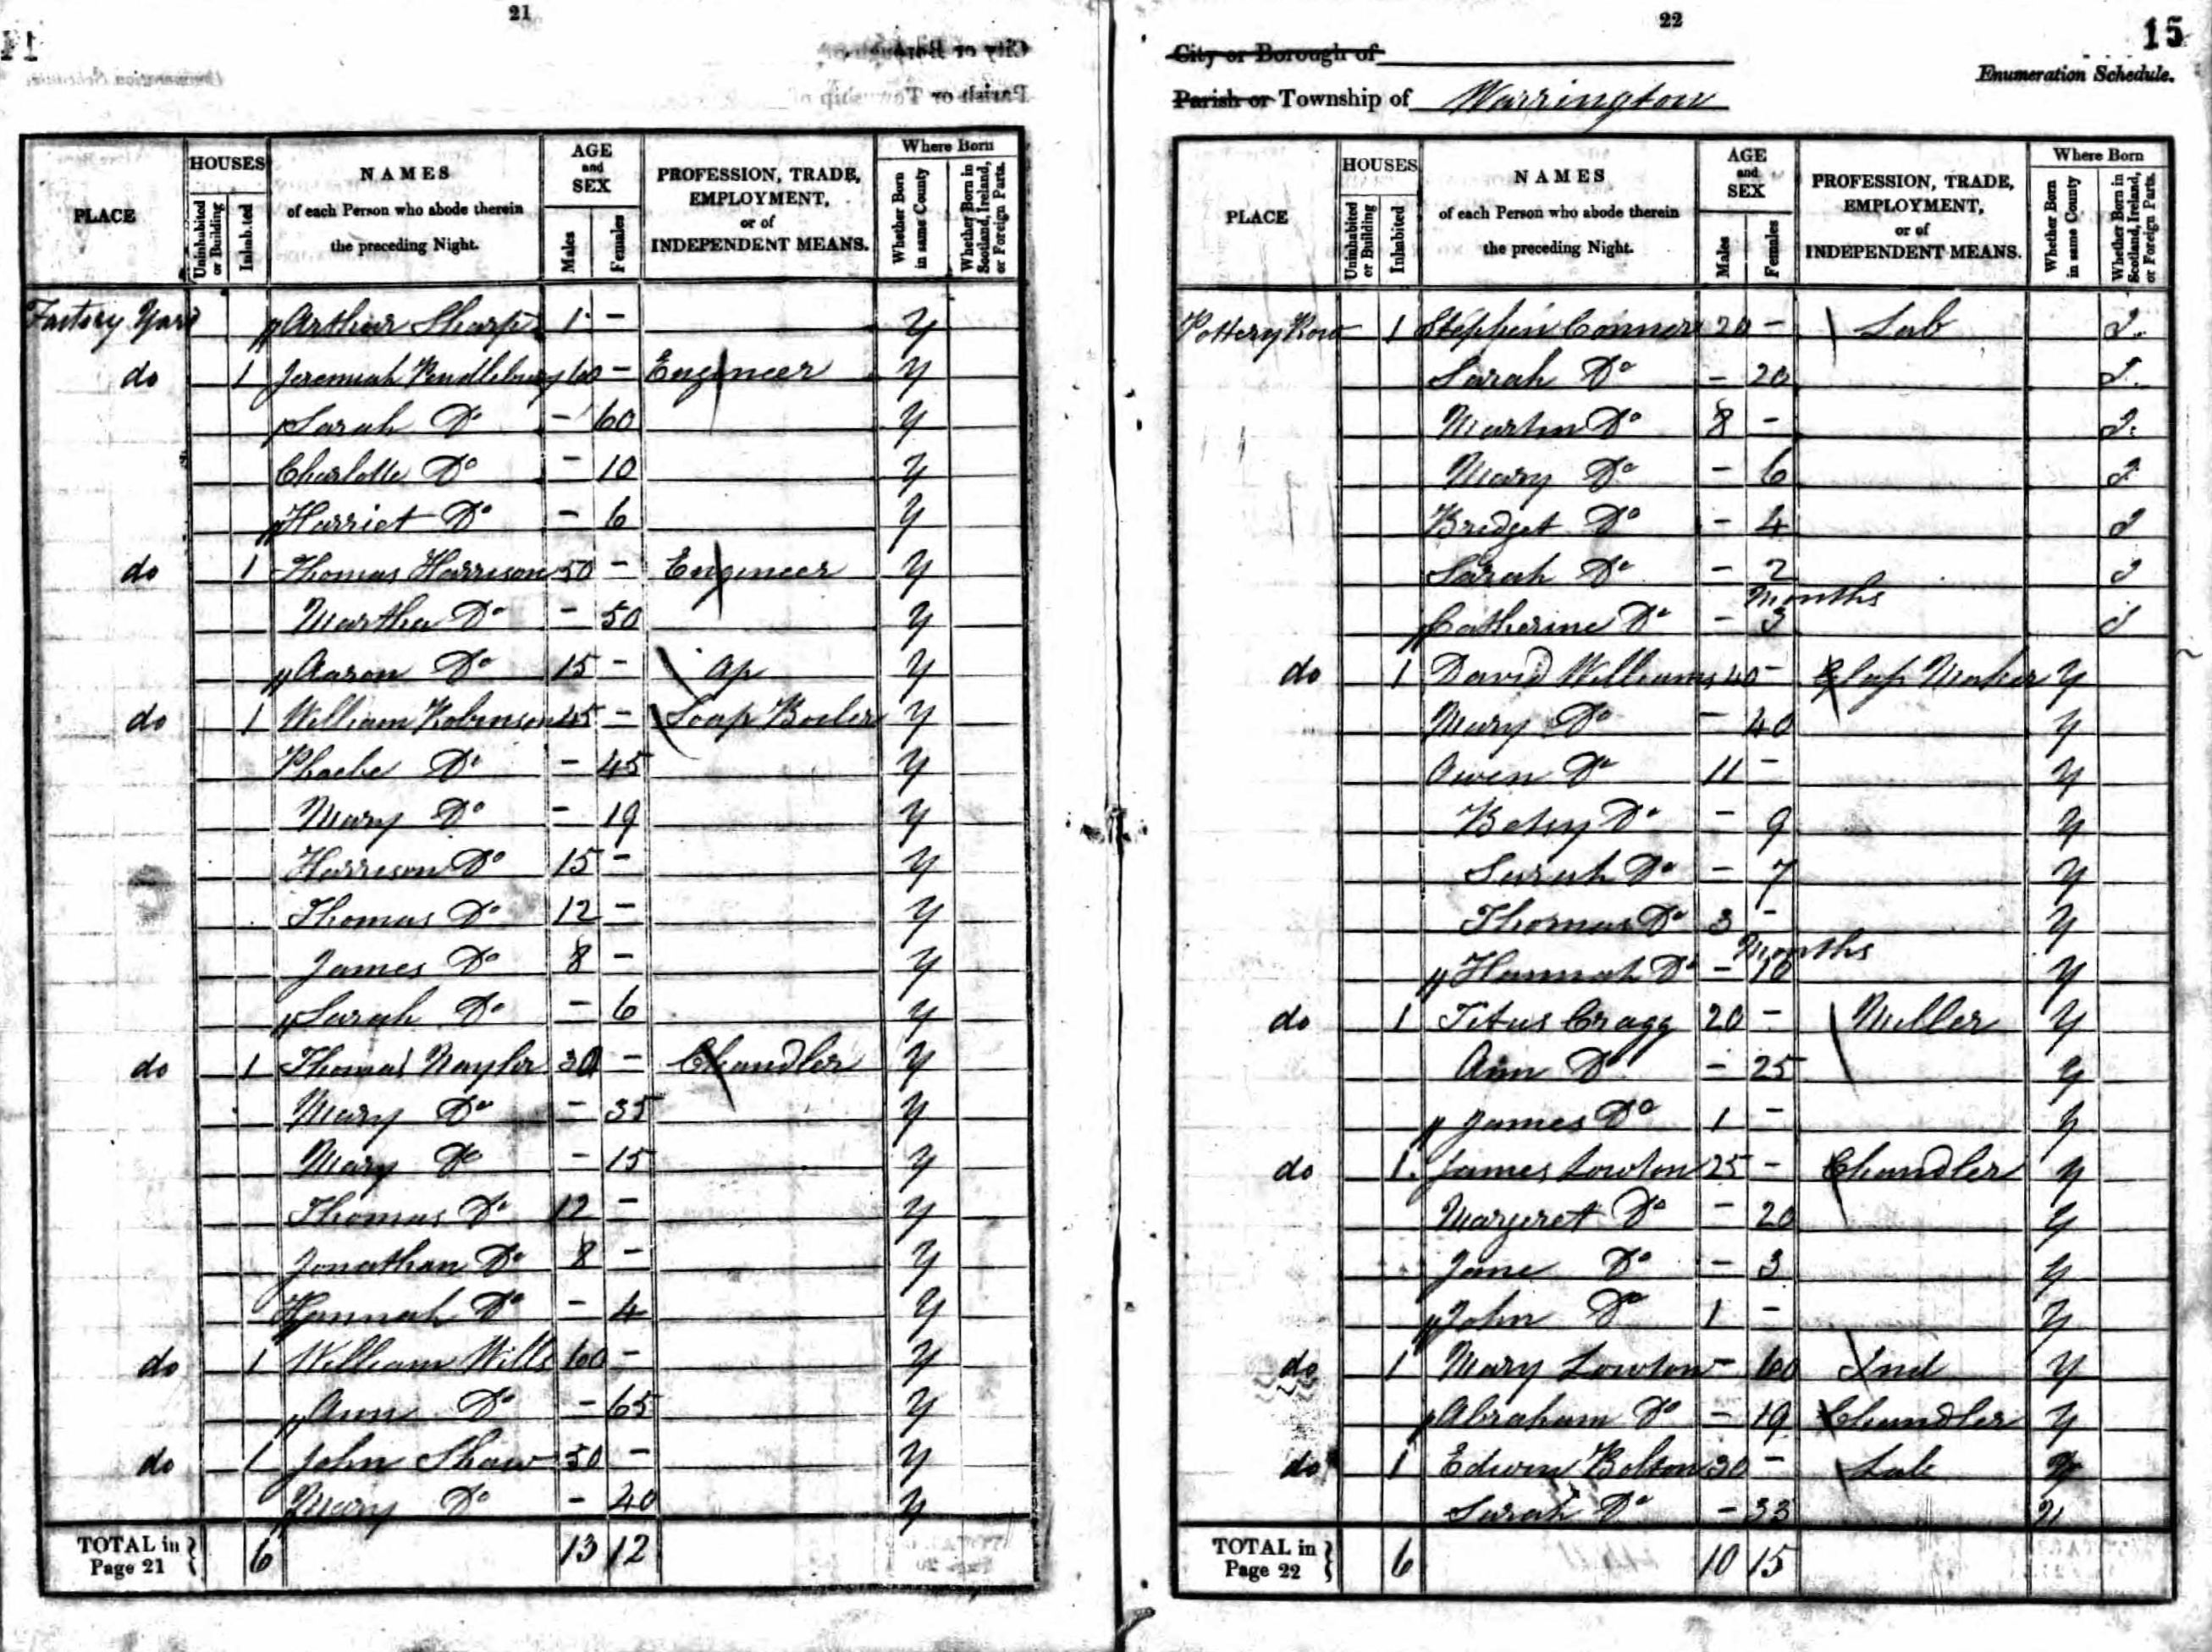 21
Factory Yard Arthur Sharp 1 - y
do 1 Jeremiah Pendlebury 60 - Engineer y
Sarah Do - 60 y
Charlotte Do - 10 y
Harriet Do - 6 y
do 1 Thomas Harrison 50 - Engineer y
Martha Do - 50 y
Aaron Do 15 - Ap y
do 1 William Robinson 45 - Soap Boiler y
Phoebe Do - 45 y
Mary Do - 19 y
Harrison Do 15 - y
Thomas Do 12 - y
James Do 8 - y
Sarah Do - 6 y
do 1 Thomas Naylor 30 - Chandler y
Mary Do - 35 y
Mary Do - 15 y
Thomas Do 12 - y
Jonathan Do 8 - y
Hannah Do - 4 y
do 1 William Wills 60 - y
Ann Do - 65 y
do 1 John Shaw 50 - y
Mary Do - 40 y
TOTAL in Page 21 } 6 13 12
PLACE
HOUSES
Uninhabited or Building
Inhabited
NAMES
of each Person who abode therein
the preceding Night.
AGE
and
SEX
Males
Females
PROFESSION, TRADE,
EMPLOYMENT,
or of
INDEPENDENT MEANS.
Where Born
Whether Born in same County
Whether Born in Scotland, Ireland, or Foreign Parts.
22
15
City or Borough of
Enumeration Schedule.
Parish or Township of Warrington
PLACE
HOUSES
Uninhabited or Building
Inhabited
NAMES
of each Person who abode therein
the preceding Night.
AGE
and
SEX
Males
Females
PROFESSION, TRADE,
EMPLOYMENT,
or of
INDEPENDENT MEANS.
Where Born
Whether Born in same County
Whether Born in Scotland, Ireland, or Foreign Parts.
Pottery Row 1 Stephen Connor 20 - Lab I
Sarah Do - 20 I
Martin Do 8 - I
Mary Do - 6 I
Bridget Do - 4 I
Sarah Do - 2 I
Months
Catherine Do - 3 I
do 1 David Williams 40 - Glass Maker y
Mary Do - 40 y
Owen Do 11 - y
Betsy Do - 9 y
Sarah Do - 7 y
Thomas Do 3 - y
Months
Hannah Do - 10 y
do 1 Titus Cragg 20 - Miller y
Ann Do - 25 y
James Do 1 - y
do 1 James Lowton 25 - Chandler y
Margeret Do - 20 y
Jane Do - 3 y
John Do 1 - y
do 1 Mary Lowton - 60 Ind y
Abraham Do - 19 Chandler y
do 1 Edwin Bolton 30 - Lab y
Sarah Do - 33 y
TOTAL in Page 22 } 6 10 15